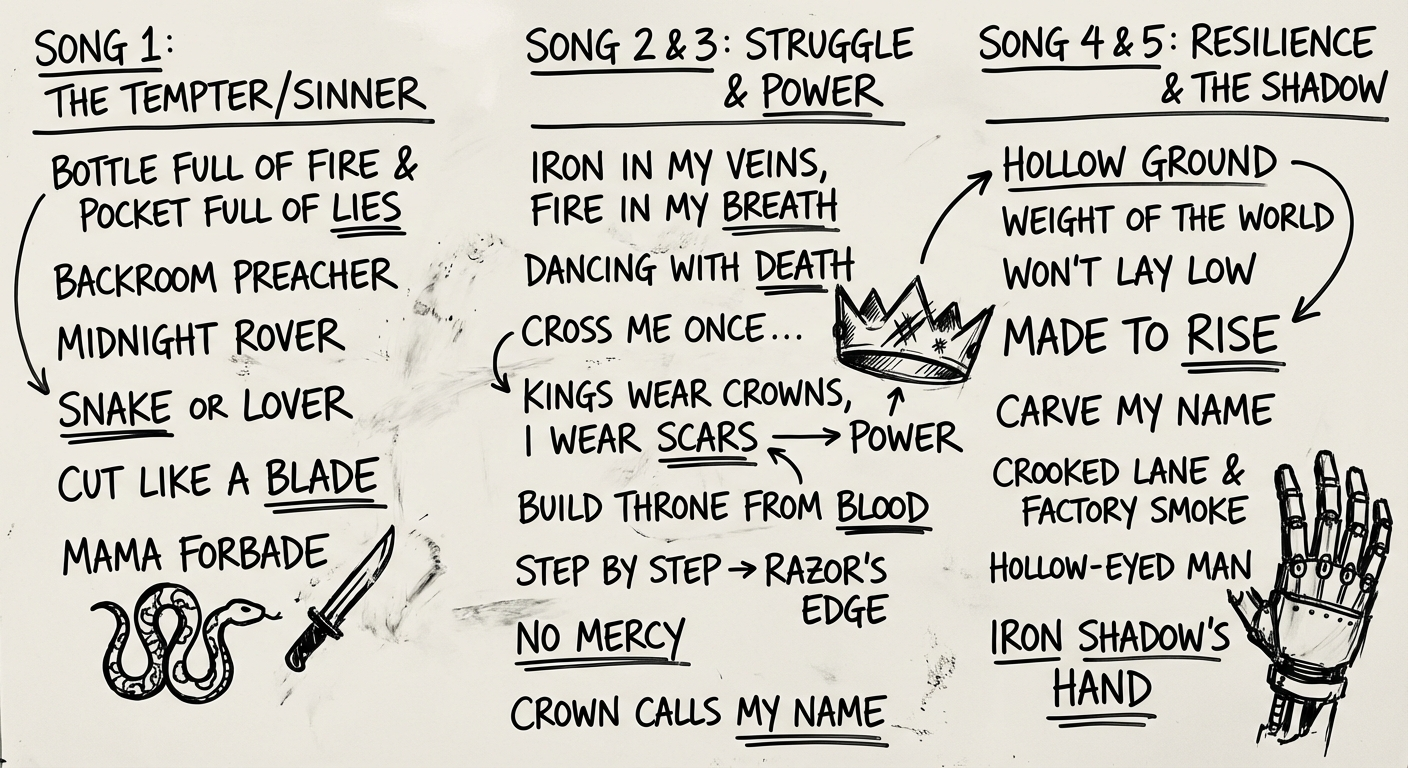 SONG 1:
THE TEMPTER/SINNER
BOTTLE FULL OF FIRE &
POCKET FULL OF LIES
BACKROOM PREACHER
MIDNIGHT ROVER
SNAKE OR LOVER
CUT LIKE A BLADE
MAMA FORBADE
SONG 2 & 3: STRUGGLE
& POWER
IRON IN MY VEINS,
FIRE IN MY BREATH
DANCING WITH DEATH
CROSS ME ONCE...
KINGS WEAR CROWNS,
I WEAR SCARS → POWER
BUILD THRONE FROM BLOOD
STEP BY STEP → RAZOR'S
EDGE
NO MERCY
CROWN CALLS MY NAME
SONG 4 & 5: RESILIENCE
& THE SHADOW
HOLLOW GROUND
WEIGHT OF THE WORLD
WON'T LAY LOW
MADE TO RISE
CARVE MY NAME
CROOKED LANE &
FACTORY SMOKE
HOLLOW-EYED MAN
IRON SHADOW'S
HAND